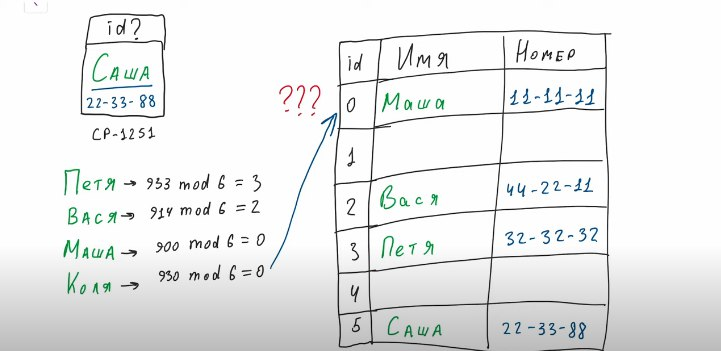 id?
САША
22-33-88
CP-1251
ПЕТЯ → 933 mod 6 = 3
ВАСЯ → 914 mod 6 = 2
МАША → 900 mod 6 = 0
КОЛЯ → 930 mod 6 = 0
???
id Имя Номер
0 Маша 11-11-11
1
2 Вася 44-22-11
3 Петя 32-32-32
4
5 Саша 22-33-88